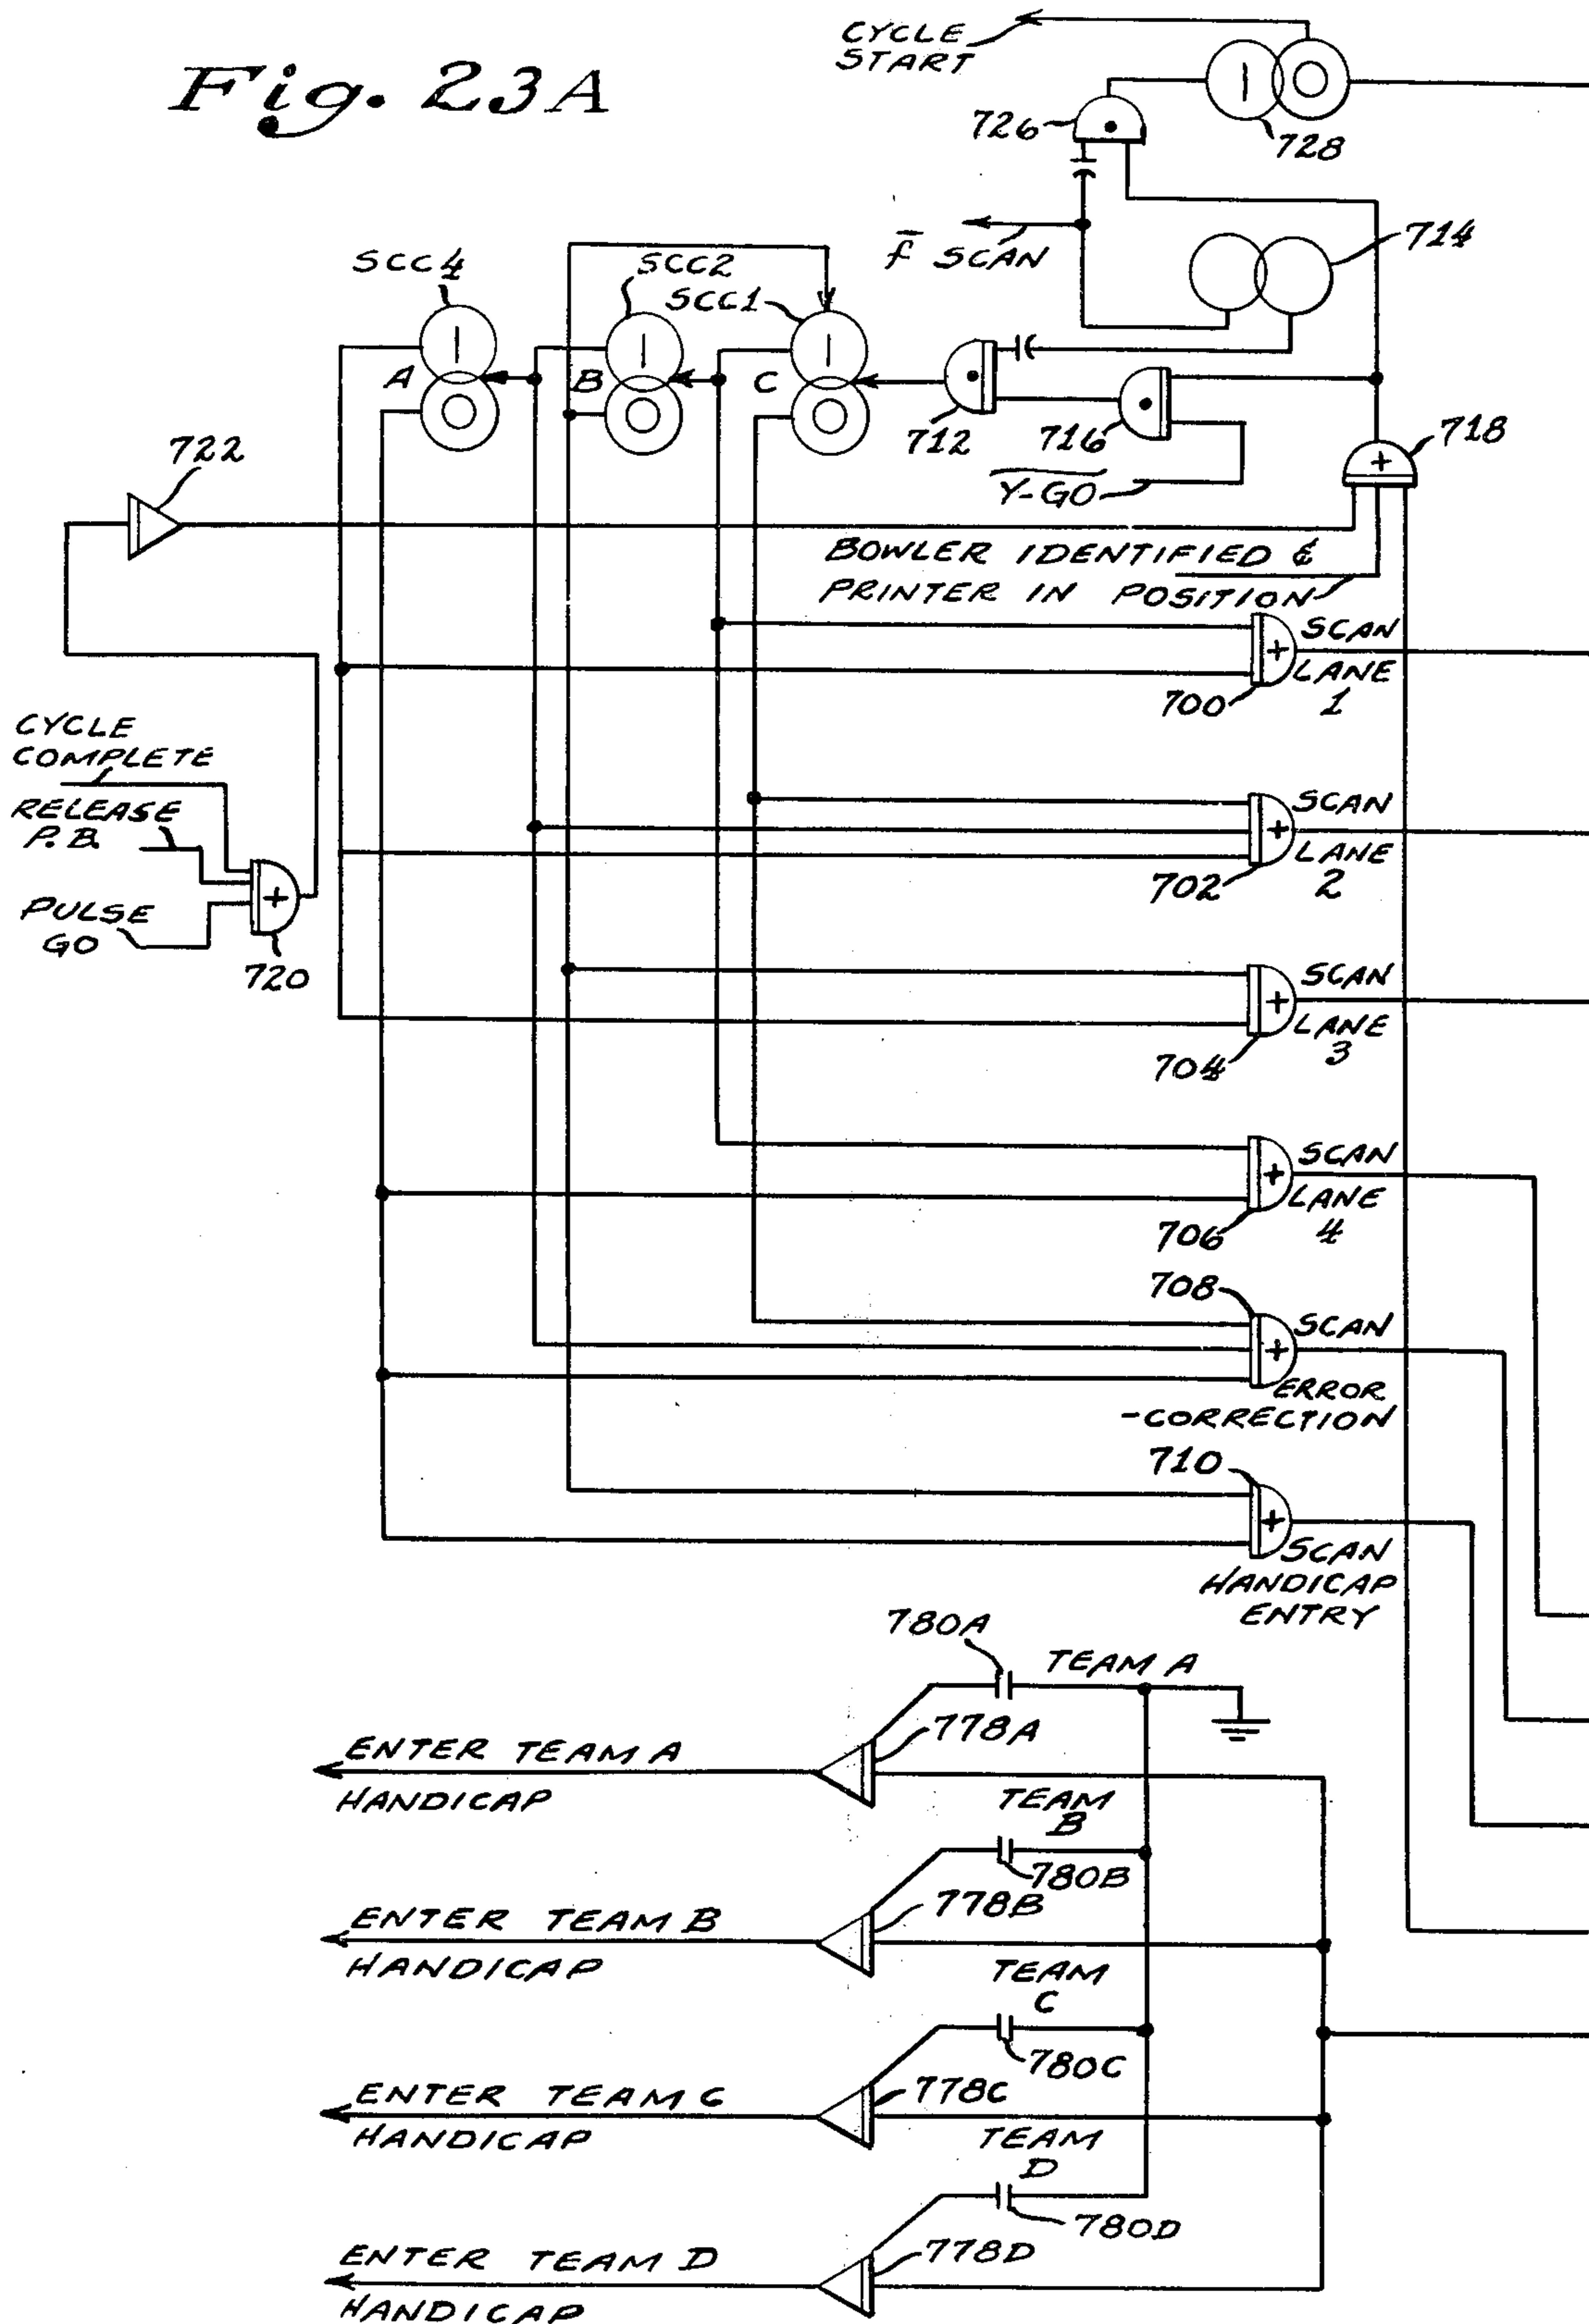 Fig. 23A
CYCLE
START
726
728
f̅ SCAN
714
SCC4
SCC2
SCC1
A
B
C
712
716
718
Y-GO
722
BOWLER IDENTIFIED &
PRINTER IN POSITION
SCAN
LANE
1
700
CYCLE
COMPLETE
RELEASE
P.B.
PULSE
GO
720
SCAN
LANE
2
702
SCAN
LANE
3
704
SCAN
LANE
4
706
708
SCAN
ERROR
-CORRECTION
710
SCAN
HANDICAP
ENTRY
780A
TEAM A
778A
ENTER TEAM A
HANDICAP
TEAM
B
780B
778B
ENTER TEAM B
HANDICAP
TEAM
C
780C
778C
ENTER TEAM C
HANDICAP
TEAM
D
780D
778D
ENTER TEAM D
HANDICAP